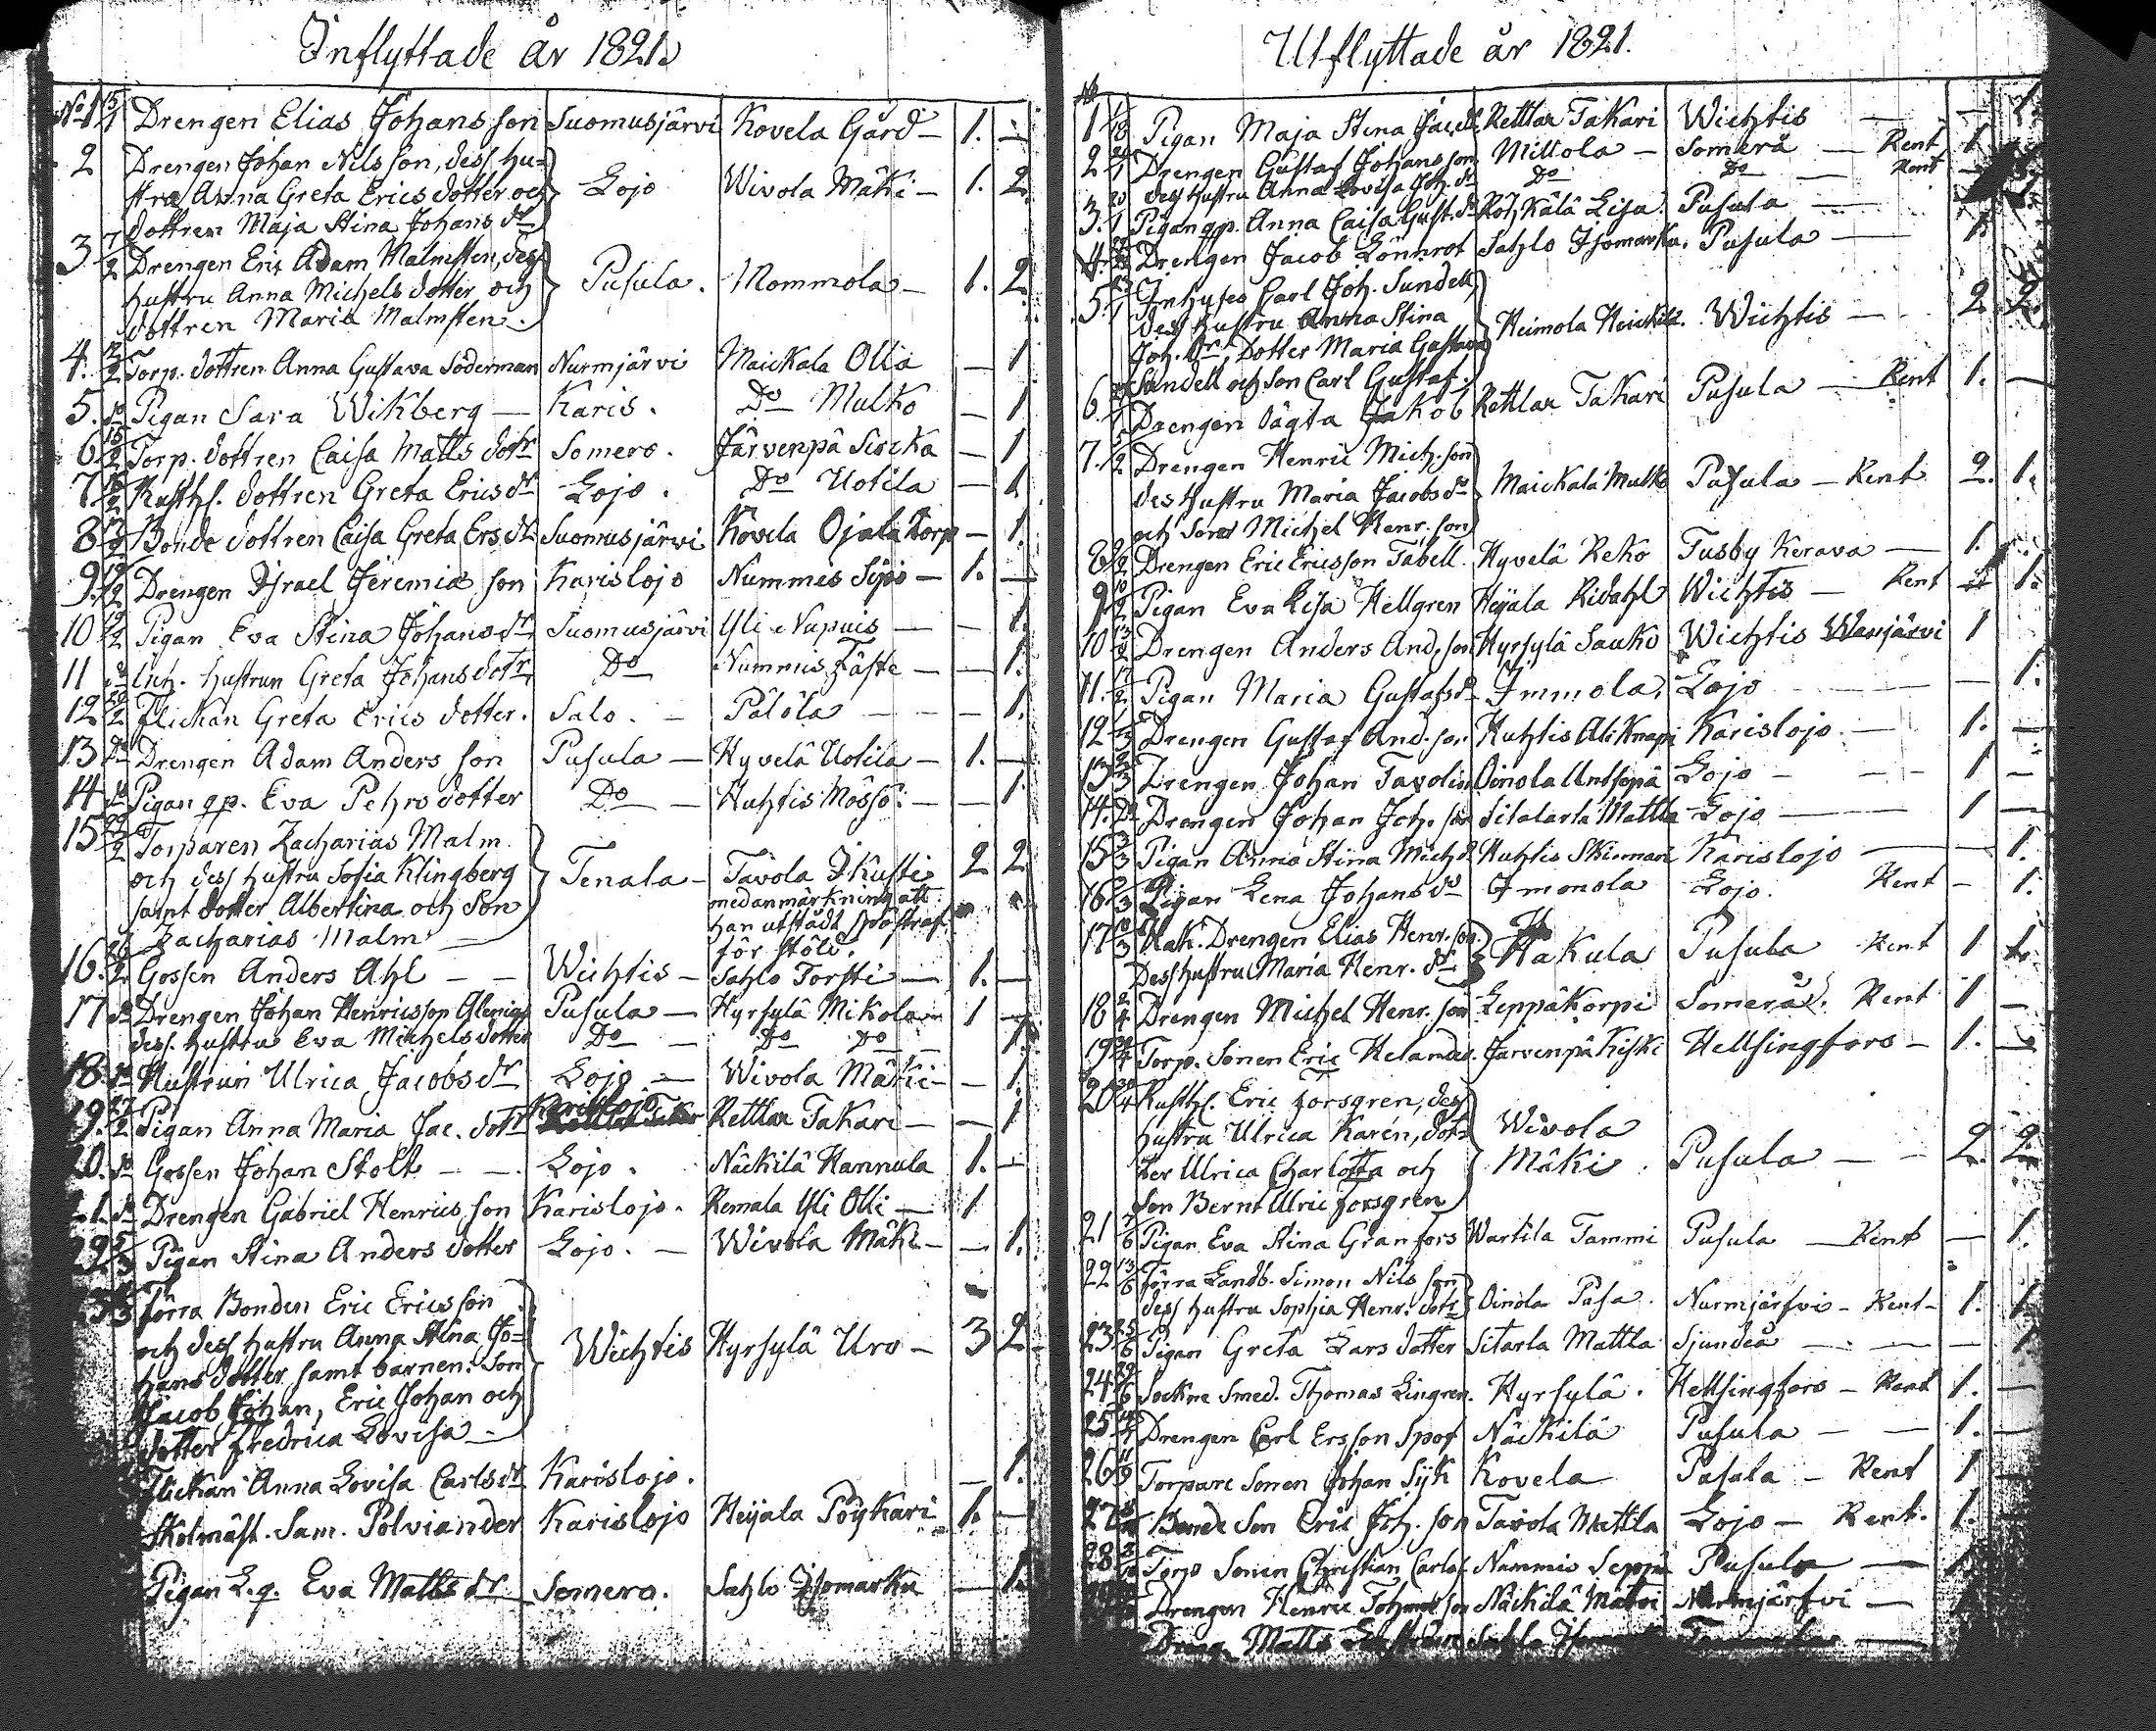 Inflyttade år 1821.
No 1 5/1 Drengen Elias Johansson Suomusjärvi Kovela Gård — 1. —
2 Drengen Johan Nilsson, dess hu=
stru Anna Greta Ericsdotter och Lojo Wivola Mäki — 1. 2.
dottren Maja Stina Johans dr
3 7/2 Drengen Eric Adam Malmsten, dess
hustru Anna Michelsdotter och Pusula. Mommola — 1. 2.
dottren Maria Malmsten.
4. 12/2 Torp. dottren Anna Gustava Söderman Nurmjärvi Maickala Olla — 1
5. do Pigan Sara Wikberg — Karis. Do Mulko — 1
6. 15/2 Torp. dottren Caisa Matts dotr Somero. Järvenpä Siscka — 1
7. 16/2 Rusth. dottren Greta Erics dr Lojo. Do Uotila — 1
8 17/2 Bonde dottren Caisa Greta Ers dr Suomusjärvi Kovela Ojala Torp — 1.
9. 19/2 Drengen Israel Jeremiæ son Karislojo Nummes Sipo — 1. —
10 19/2 Pigan Eva Stina Johans dr Suomusjärvi Yli Nupuis — — 1.
11 do Inh. hustrun Greta Johans dotr Do Nummis Fäste — — 1.
12 20/2 Flickan Greta Erics dotter. Salo. — Pälölä — — 1.
13 Do Drengen Adam Anders son Pusula — Hyvelä Uotila — 1. —
14 do Pigan qp. Eva Pehrs dotter Do — Huhtis Mosso. — — 1.
15 22/2 Torparen Zacharias Malm
och dess hustru Sofia Klingberg Tenala — Tavola Ikusti 2 2
samt dotter Albertina och Son medanmärkning att
Zacharias Malm — han utstådt spöstraf
för stöld.
16. 26/2 Gossen Anders Ahl — — Wichtis — Sahlo Torsti — 1. —
17 do Drengen Johan Henricsson Pusula — Hyrsylä Mikola — 1 —
dess. hustru Eva Michelsdotter Do — Do Do — 1.
18. do Hustrun Ulrica Jacobs dr Lojo — Wivola Mäki — — 1.
19. 27/2 Pigan Anna Maria Jac. dotr Karislojo Rettlax Takari — — 1
20. do Gossen Johan Stolt — — Lojo. Näckilä Hannula 1. —
21. do Drengen Gabriel Henrics son Karislojo. Remala Yli Olli — 1
22 5/3 Pigan Stina Anders dotter Lojo. — Wivola Mäki — — 1.
Förra Bonden Eric Ericsson
och dess hustru Anna Stina Jo=
hans dotter samt barnen: Son Wichtis Hyrsylä Uro — 3 2
Jacob Johan, Eric Johan och
dotter Fredrica Lovisa —
Flickan Anna Lovisa Carls dr Karislojo. — 1.
Skolmäst. Sam. Polviander Karislojo Heijala Pöykäri 1. —
Pigan L.q. Eva Matts dr Somero. Sahlo Isomarku — 1.
Utflyttade år 1821.
No
1 Pigan Maja Stina Jac. dr Rettlax Takari Wichtis — — 1.
2 20/1 Drengen Gustaf Johansson Millola — Somerå — Rent 1
dess hustru Anna Lovisa Joh. dr Do Do — Rent
3. 20/1 Pigan qp. Anna Caisa Gust. dr Lisa. Pusula —
4. Drengen Jacob Lönnrot Sahlo Isomarku. Pusula — 1.
5. Inhyses Carl Joh. Sundell,
dess hustru Anna Stina Heimola Heickilä. Wichtis — 2. 2.
Joh. dr, Dotter Maria Gustava
Sundell och Son Carl Gustaf.
6. Drengen Jakob Rettlax Takari Pusula — Rent 1. —
7. 5/2 Drengen Henric Mich. son
des hustru Maria Jacobs dr Maickala Mulko Pusula — Rent 2. 1.
och Son Michel Henr. son
8 Drengen Eric Ericsson Tabell. Hyvelä Reko Tusby Kerava — 1.
9 10/2 Pigan Eva Lisa Hellgren Heijala Ridahl Wichtis — Rent 1.
10 13/2 Drengen Anders And. son Hyrsylä Sauko Wichtis Wanjärvi 1
11. 17/2 Pigan Maria Gustafs dr Immola, Lojo — — 1.
12 Drengen Gustaf And. son Huhtis Ali Knapi Karislojo. — 1. —
13 Drengen Johan Tavolin Oinola Untsopä Lojo — — 1 —
14. Do Drengen Johan Joh. son Sitalarla Mattla Lojo — 1 —
15 3/3 Pigan Anna Stina Mich dr Huhtis Skinnari Karislojo — 1.
16. Pigan Lena Johans dr Immola Lojo. Rent — 1.
17 10/3 Drengen Elias Henr. son. Hakula Pusula Rent 1 1.
Dess hustru Maria Henr. dr
18 2/4 Drengen Michel Henr. son Leppäkorpi Somerå. Rent 1 —
19 Torp. Sonen Eric Helander. Jarvenpä Kiski Hellsingfors — 1. —
20 30/4 Rusth. Eric Forsgren, dess
hustru Ulrica Karén, dot= Wivola
ter Ulrica Charlotta och Mäki. Pusula — — 2. 2.
Son Bernt Ulric Forsgren
21 7/6 Pigan Eva Stina Granfors Wartila Tammi Pusula — Rent — 1.
22 13/6 Förra Landb. Simon Nils son
dess hustru Sophia Henr. dotr Oinola Pasa. Nurmjärfvi — Rent — 1. 1
23 25/6 Pigan Greta Lars dotter Sitarla Mattla Sjundeå — — 1
24 29/6 Sockne Smed. Thomas Lingren. Hyrsylä. Hellsingfors — Rent 1. —
25 Drengen Carl Ersson Spof Näckilä Pusula — — 1. —
26 11/9 Torpare Sonen Johan Sjk Kovela Pusula — Rent 1 —
27 Bonde Son Eric Joh. son Tavola Mattla Lojo — Rent. 1. —
28 Torp Sonen Christian Carls. Nummis Seppä Pusula — 1
Drengen Henric Näckilä Matvi Nurmjärfvi — 1
Dreng Matts